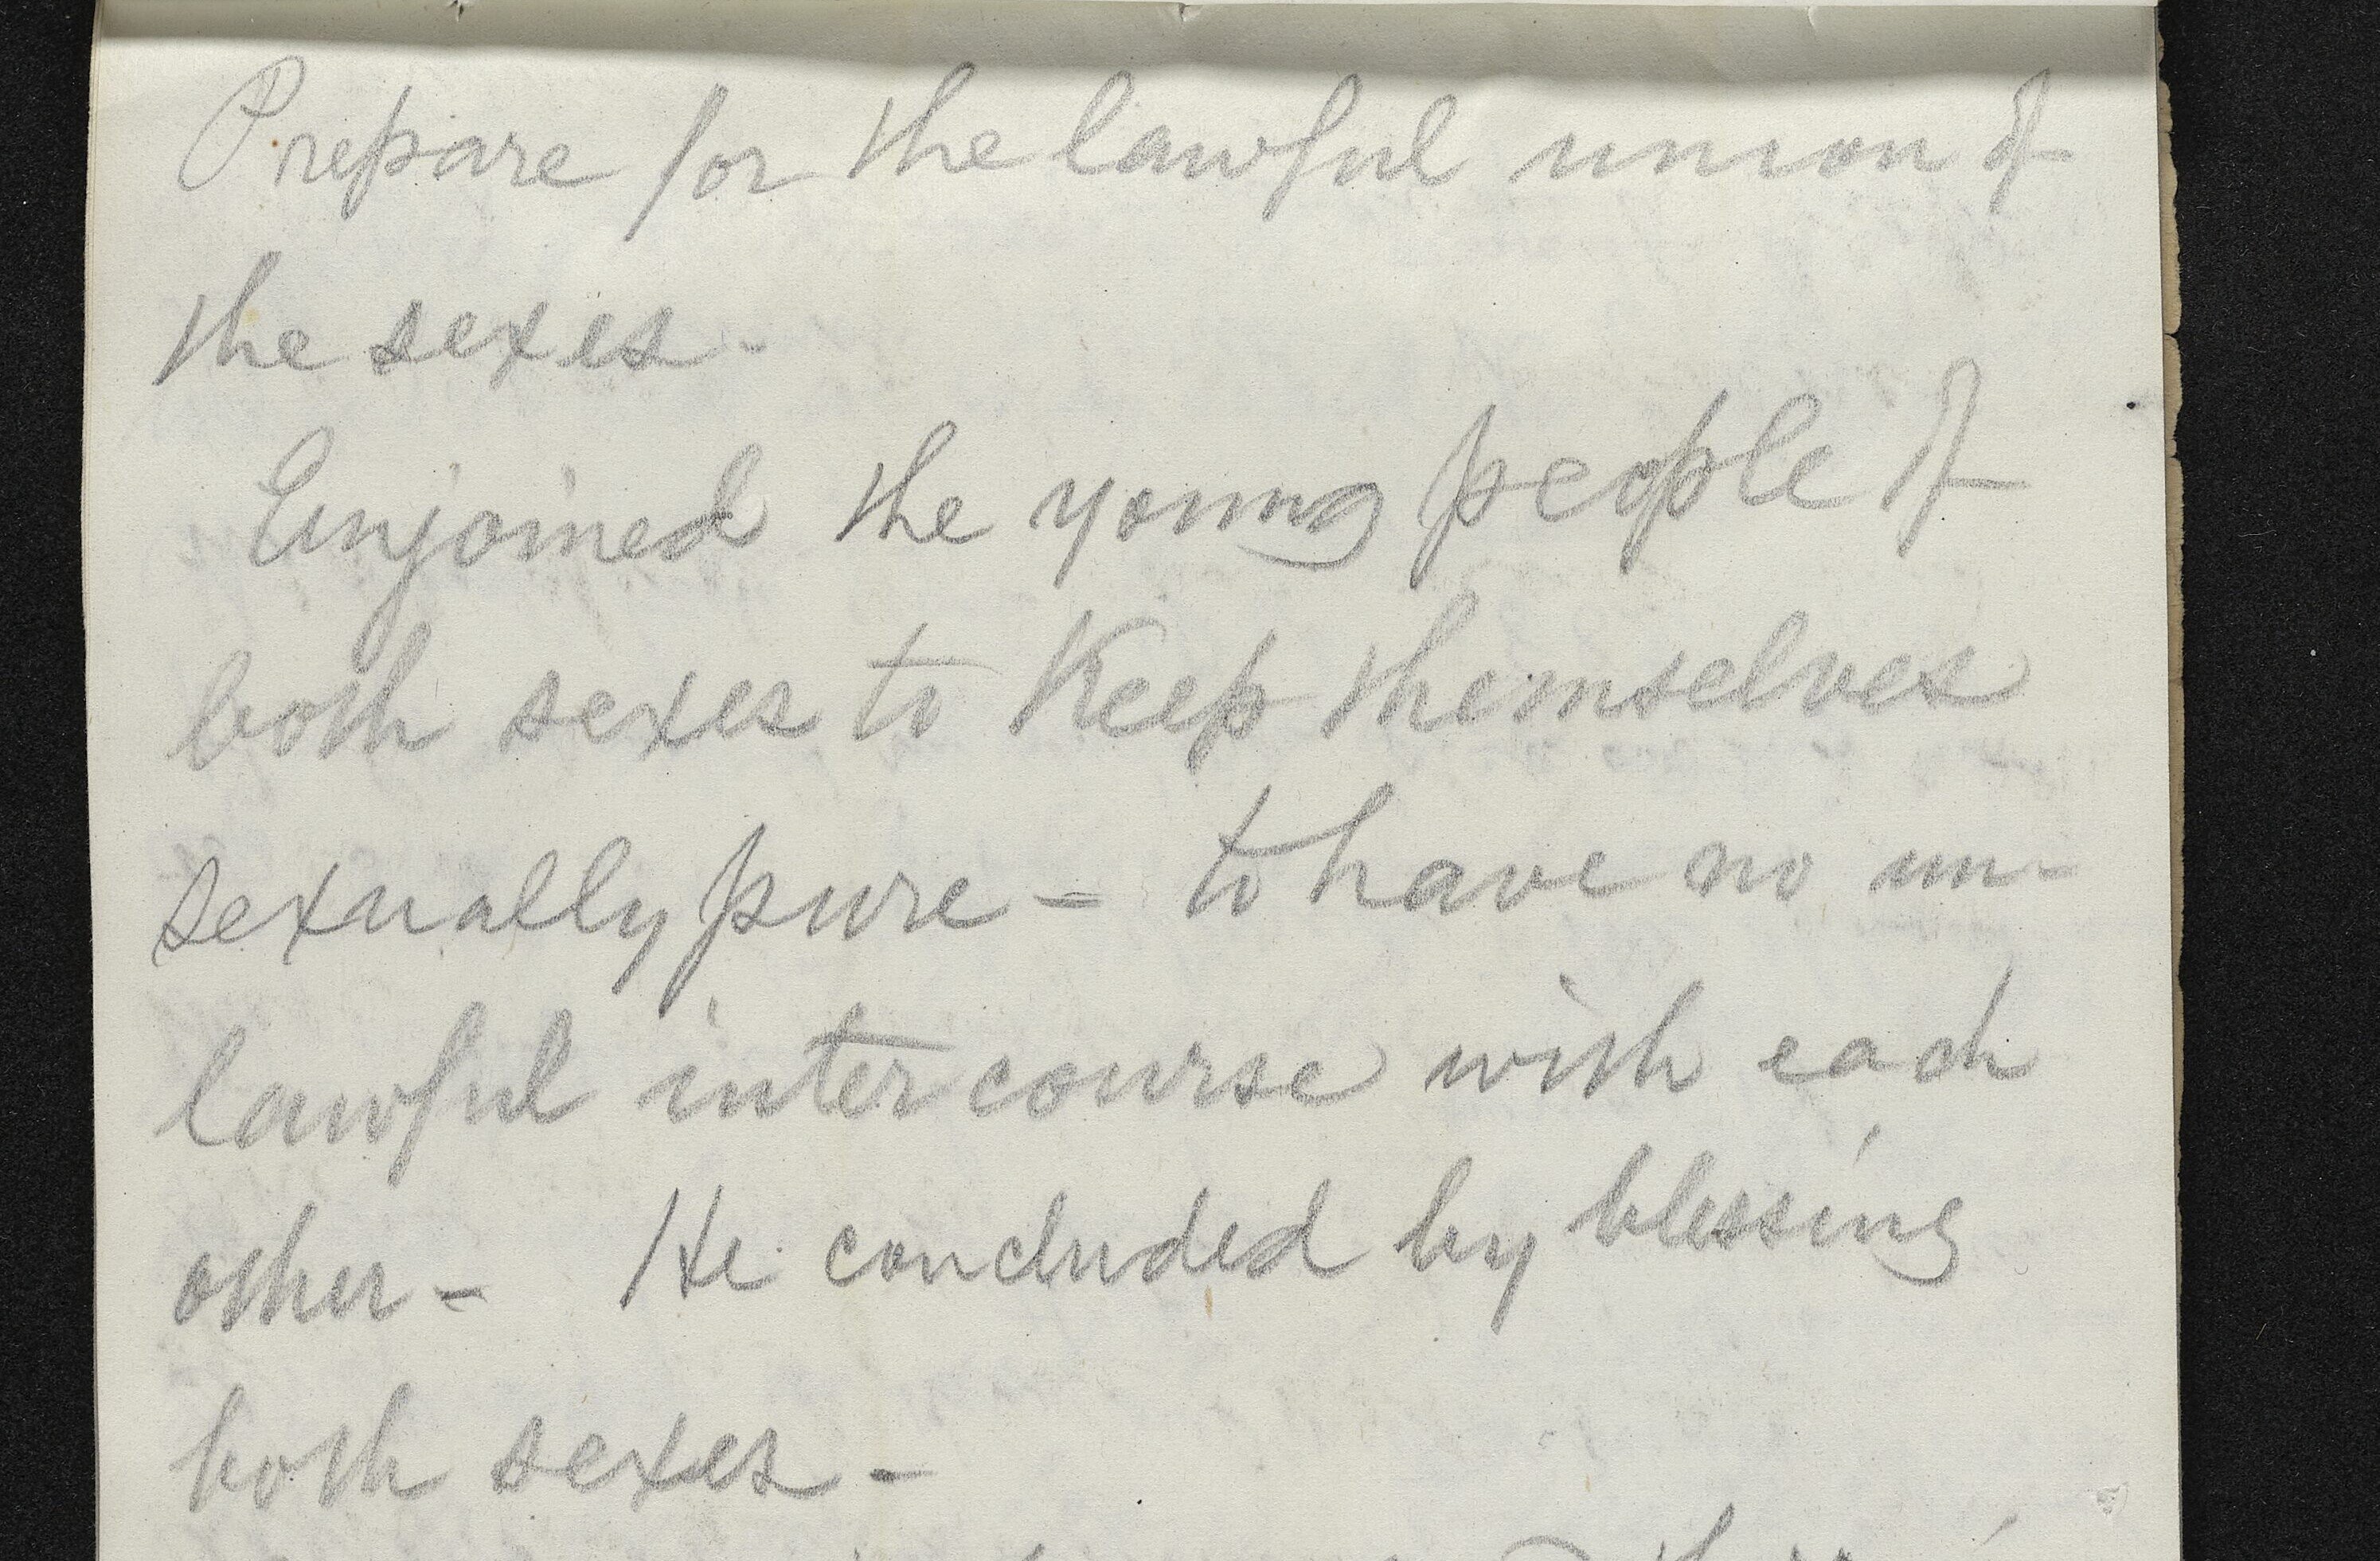 Prepare for the lawful union of
the sexes -
Enjoined the young people of
both sexes to Keep themselves
sexually pure - to have no un-
lawful intercourse with each
other - He concluded by blessing
both sexes -